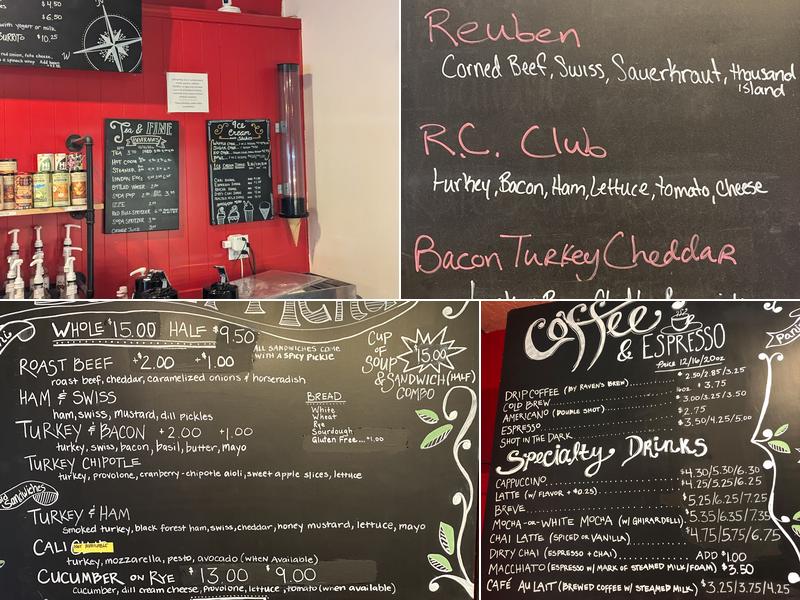 4.50
with yogert or milk.
$6.50
BURRITO $10.25
W
Tea & FINE
BEVERAGES
TEA
HOT COCOA
STEAMER
LONDON FOG
BOTTLED WATER 2.00
SODA POP
IZZE
RED BULL SPRITZER
SODA SPRITZER
ORANGE JUICE
Ice
Cream
Shakes
Reuben
Corned Beef, Swiss, Sauerkraut, thousand
island
R.C. Club
turkey, Bacon, Ham, Lettuce, tomato, Cheese
Bacon Turkey Cheddar
WHOLE $15.00 HALF $9.50
ALL SANDWICHES COME
WITH A SPICY PICKLE
ROAST BEEF +$2.00 +$1.00
roast beef, cheddar, caramelized onions & horseradish
HAM & SWISS
ham, swiss, mustard, dill pickles
TURKEY & BACON +2.00 +1.00
turkey, swiss, bacon, basil, butter, mayo
TURKEY CHIPOTLE
turkey, provolone, cranberry-chipotle aioli, sweet apple slices, lettuce
CUP
OF
SOUP
& SANDWICH (HALF)
COMBO
$15.00
BREAD
White
Wheat
Rye
Sourdough
Gluten Free... $1.00
Sandwiches
TURKEY & HAM
smoked turkey, black forest ham, swiss, cheddar, honey mustard, lettuce, mayo
CALI
NOT AVAILABLE
turkey, mozzarella, pesto, avocado (when Available)
CUCUMBER ON RYE $13.00 $9.00
cucumber, dill cream cheese, provolone, lettuce, tomato (when available)
Coffee
& ESPRESSO
Price 12/16/20oz
DRIP COFFEE (BY RAVEN'S BREW) $2.50/2.85/3.25
COLD BREW 16oz $3.75
AMERICANO (DOUBLE SHOT) $3.00/3.25/3.50
ESPRESSO $2.75
SHOT IN THE DARK $3.50/4.25/5.00
Specialty Drinks
CAPPUCCINO $4.30/5.30/6.30
LATTE (W/ FLAVOR +$0.25) $4.25/5.25/6.25
BREVE $5.25/6.25/7.25
MOCHA-OR-WHITE MOCHA (W/ GHIRARDELLI) $5.35/6.35/7.35
CHAI LATTE (SPICED OR VANILLA) $4.75/5.75/6.75
DIRTY CHAI (ESPRESSO + CHAI) ADD $1.00
MACCHIATO (ESPRESSO W/ MARK OF STEAMED MILK/FOAM) $3.50
CAFÉ AU LAIT (BREWED COFFEE W/ STEAMED MILK) $3.25/3.75/4.25